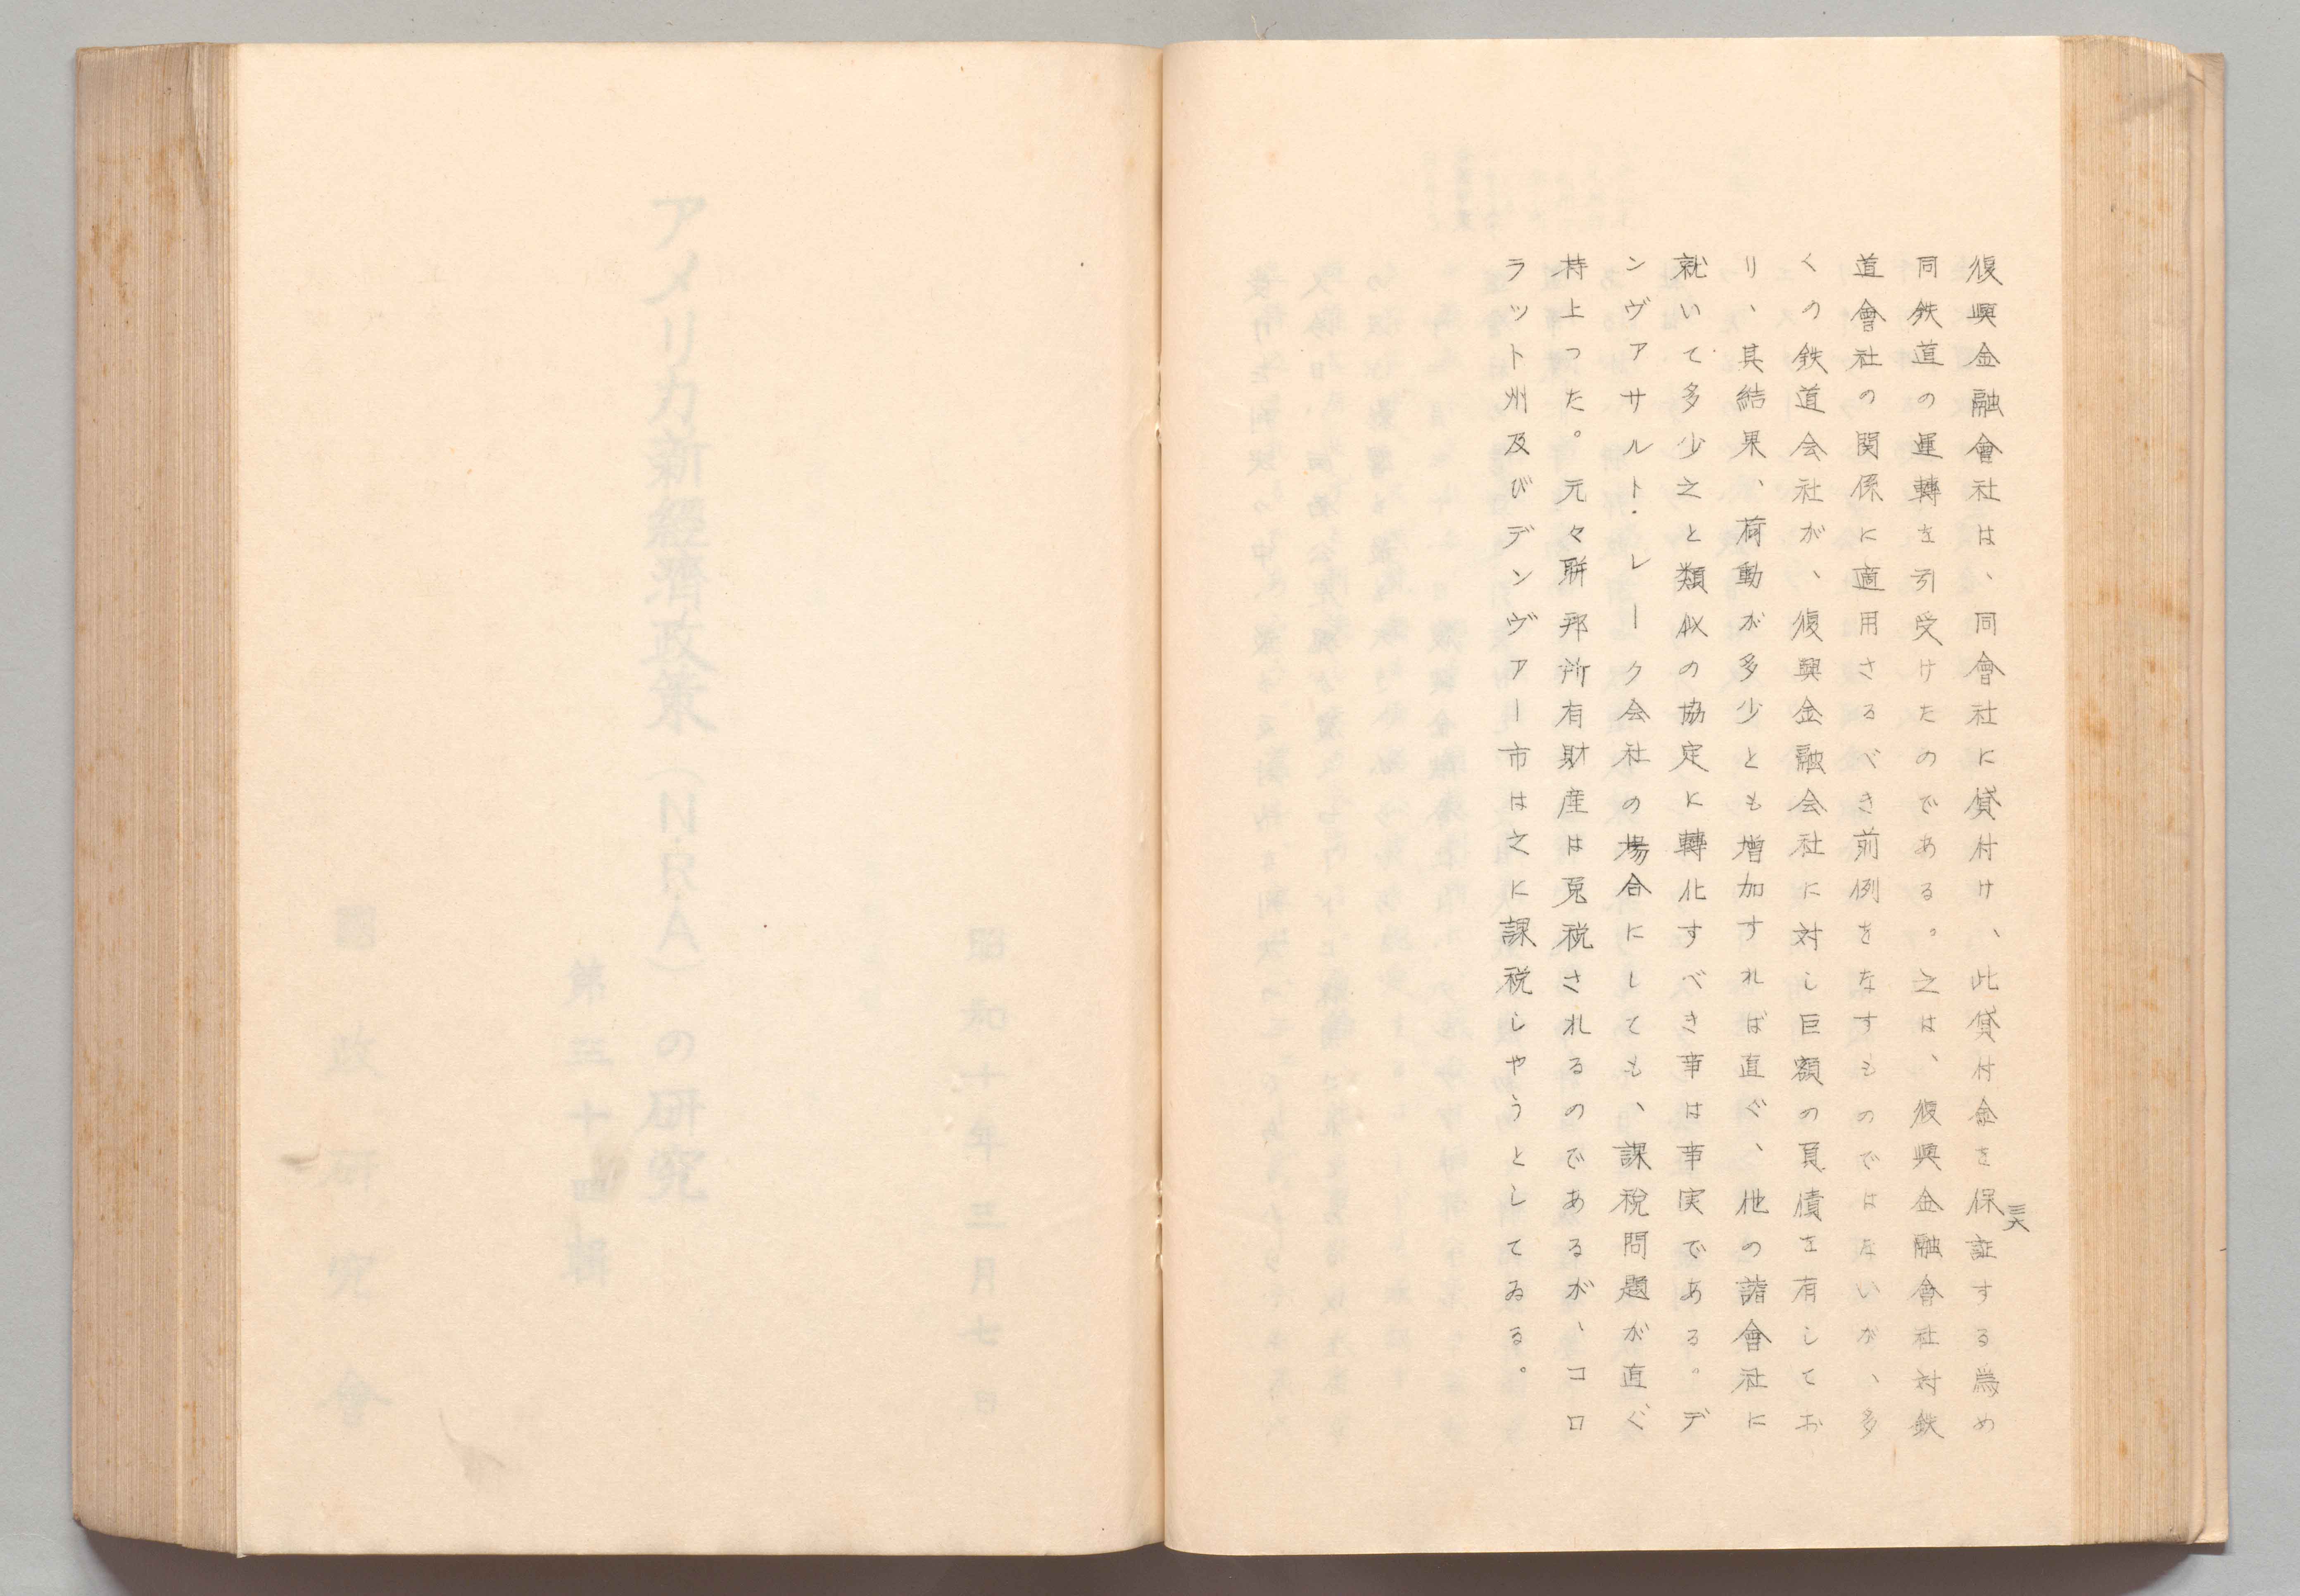 復興金融會社は、同會社に貸付け、此貸付金を保証する為め
同鉄道の運轉を引受けたのである。之は、復興金融會社対鉄
道會社の関係に適用さるべき前例をなすものではないが、多
くの鉄道会社が、復興金融会社に対し巨額の負債を有してお
り、其結果、荷動が多少とも増加すれば直ぐ、他の諸會社に
就いて多少之と類似の協定に轉化すべき事は事実である。デ
ンヴアサルト・レーク会社の場合にしても、課税問題が直ぐ
持上った。元々聯邦所有財産は免税されるのであるが、コロ
ラット州及びデンヴァー市は之に課税しやうとしてゐる。
三六
昭和十年三月七日
アメリカ新經濟政策（N.R.A）の研究
第三十四輯
國政研究會